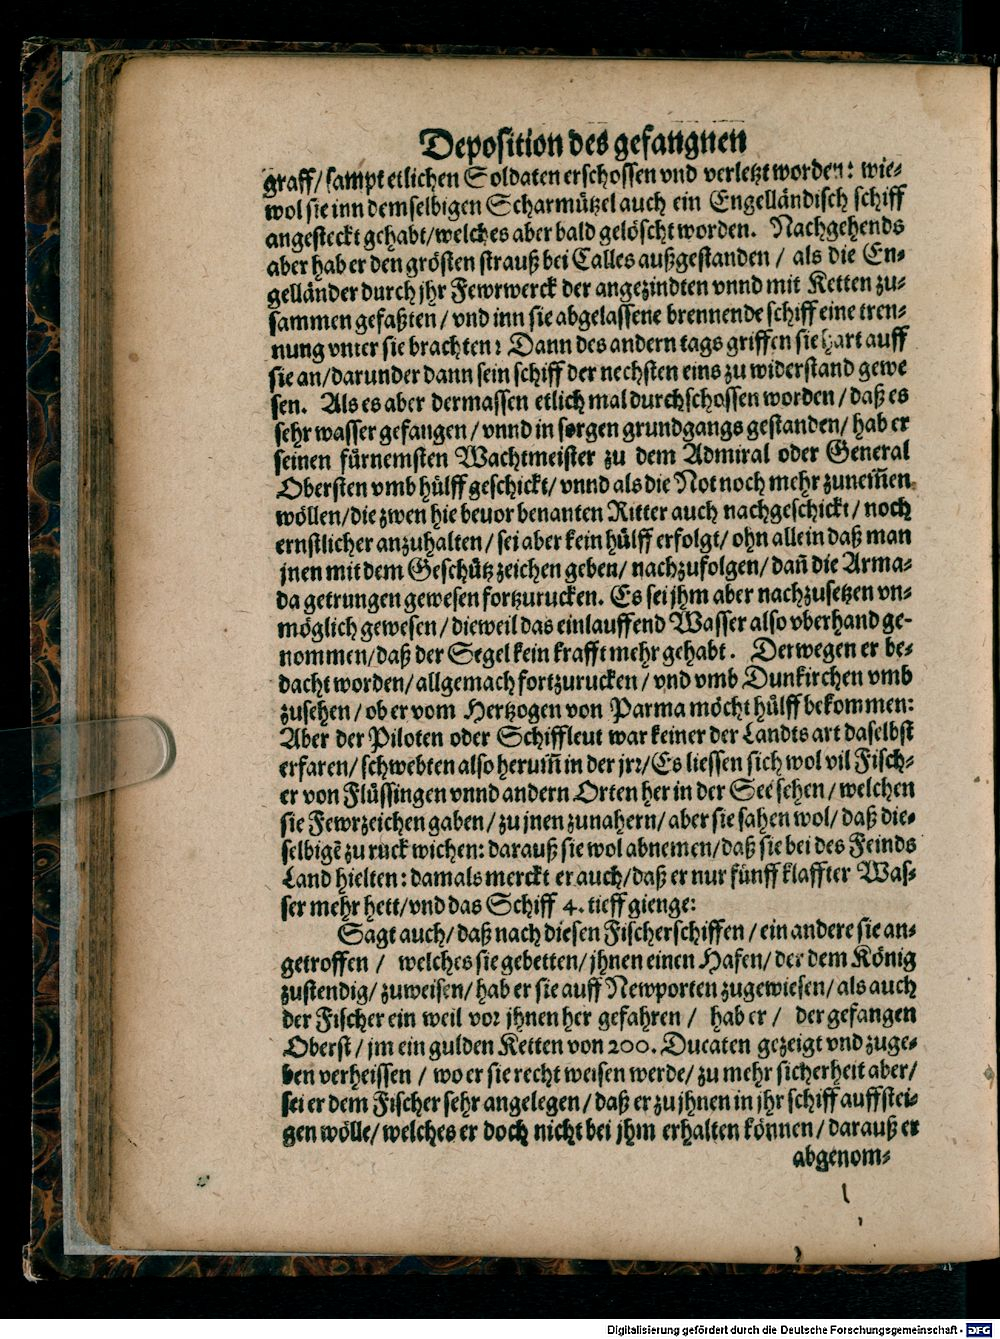 Deposition des gefangnen
graff/ sampt etlichen Soldaten erschossen vnd verletzt worden: wie⸗
wol sie inn demselbigen Scharmützel auch ein Engelländisch schiff
angesteckt gehabt/ welches aber bald gelöscht worden. Nachgehends
aber hab er den grösten strauß bei Calles außgestanden / als die En⸗
gelländer durch jhr Fewrwerck der angezindten vnnd mit Ketten zu⸗
sammen gefaßten / vnd inn sie abgelassene brennende schiff eine tren⸗
nung vnter sie brachten: Dann des andern tags griffen sie hart auff
sie an/ darunder dann sein schiff der nechsten eins zu widerstand gewe
sen. Als es aber dermassen etlich mal durchschossen worden / daß es
sehr wasser gefangen / vnnd in sorgen grundgangs gestanden/ hab er
seinen fürnemsten Wachtmeister zu dem Admiral oder General
Obersten vmb hülff geschickt/ vnnd als die Not noch mehr zunem̃en
wöllen/ die zwen hie beuor benanten Ritter auch nachgeschickt / noch
ernstlicher anzuhalten / sei aber kein hülff erfolgt/ ohn allein daß man
jnen mit dem Geschütz zeichen geben/ nachzufolgen/ dañ die Arma⸗
da getrungen gewesen fortzurucken. Es sei jhm aber nachzusetzen vn⸗
möglich gewesen / dieweil das einlauffend Wasser also vberhand ge⸗
nommen/ daß der Segel kein krafft mehr gehabt. Derwegen er be⸗
dacht worden/ allgemach fortzurucken / vnd vmb Dunkirchen vmb
zusehen / ob er vom Hertzogen von Parma möcht hülff bekommen:
Aber der Piloten oder Schiffleut war keiner der Landts art daselbst
erfaren/ schwebten also herum̃ in der jrr/ Es liessen sich wol vil Fisch⸗
er von Flüssingen vnnd andern Orten her in der See sehen / welchen
sie Fewrzeichen gaben/ zu jnen zunahern/ aber sie sahen wol/ daß die⸗
selbigẽ zu ruck wichen: darauß sie wol abnemen/ daß sie bei des Feinds
Land hielten: damals merckt er auch/ daß er nur fünff klaffter Was⸗
ser mehr hett/ vnd das Schiff 4. tieff gienge:
Sagt auch/ daß nach diesen Fischerschiffen / ein andere sie an⸗
getroffen / welches sie gebetten/ jhnen einen Hafen/ der dem König
zustendig/ zuweisen/ hab er sie auff Newporten zugewiesen/ als auch
der Fischer ein weil vor jhnen her gefahren / hab er / der gefangen
Oberst / jm ein gulden Ketten von 200. Ducaten gezeigt vnd zuge⸗
ben verheissen / wo er sie recht weisen werde/ zu mehr sicherheit aber/
sei er dem Fischer sehr angelegen / daß er zu jhnen in jhr schiff auffstei⸗
gen wölle/ welches er doch nicht bei jhm erhalten können / darauß er
abgenom⸗
Digitalisierung gefördert durch die Deutsche Forschungsgemeinschaft - DFG